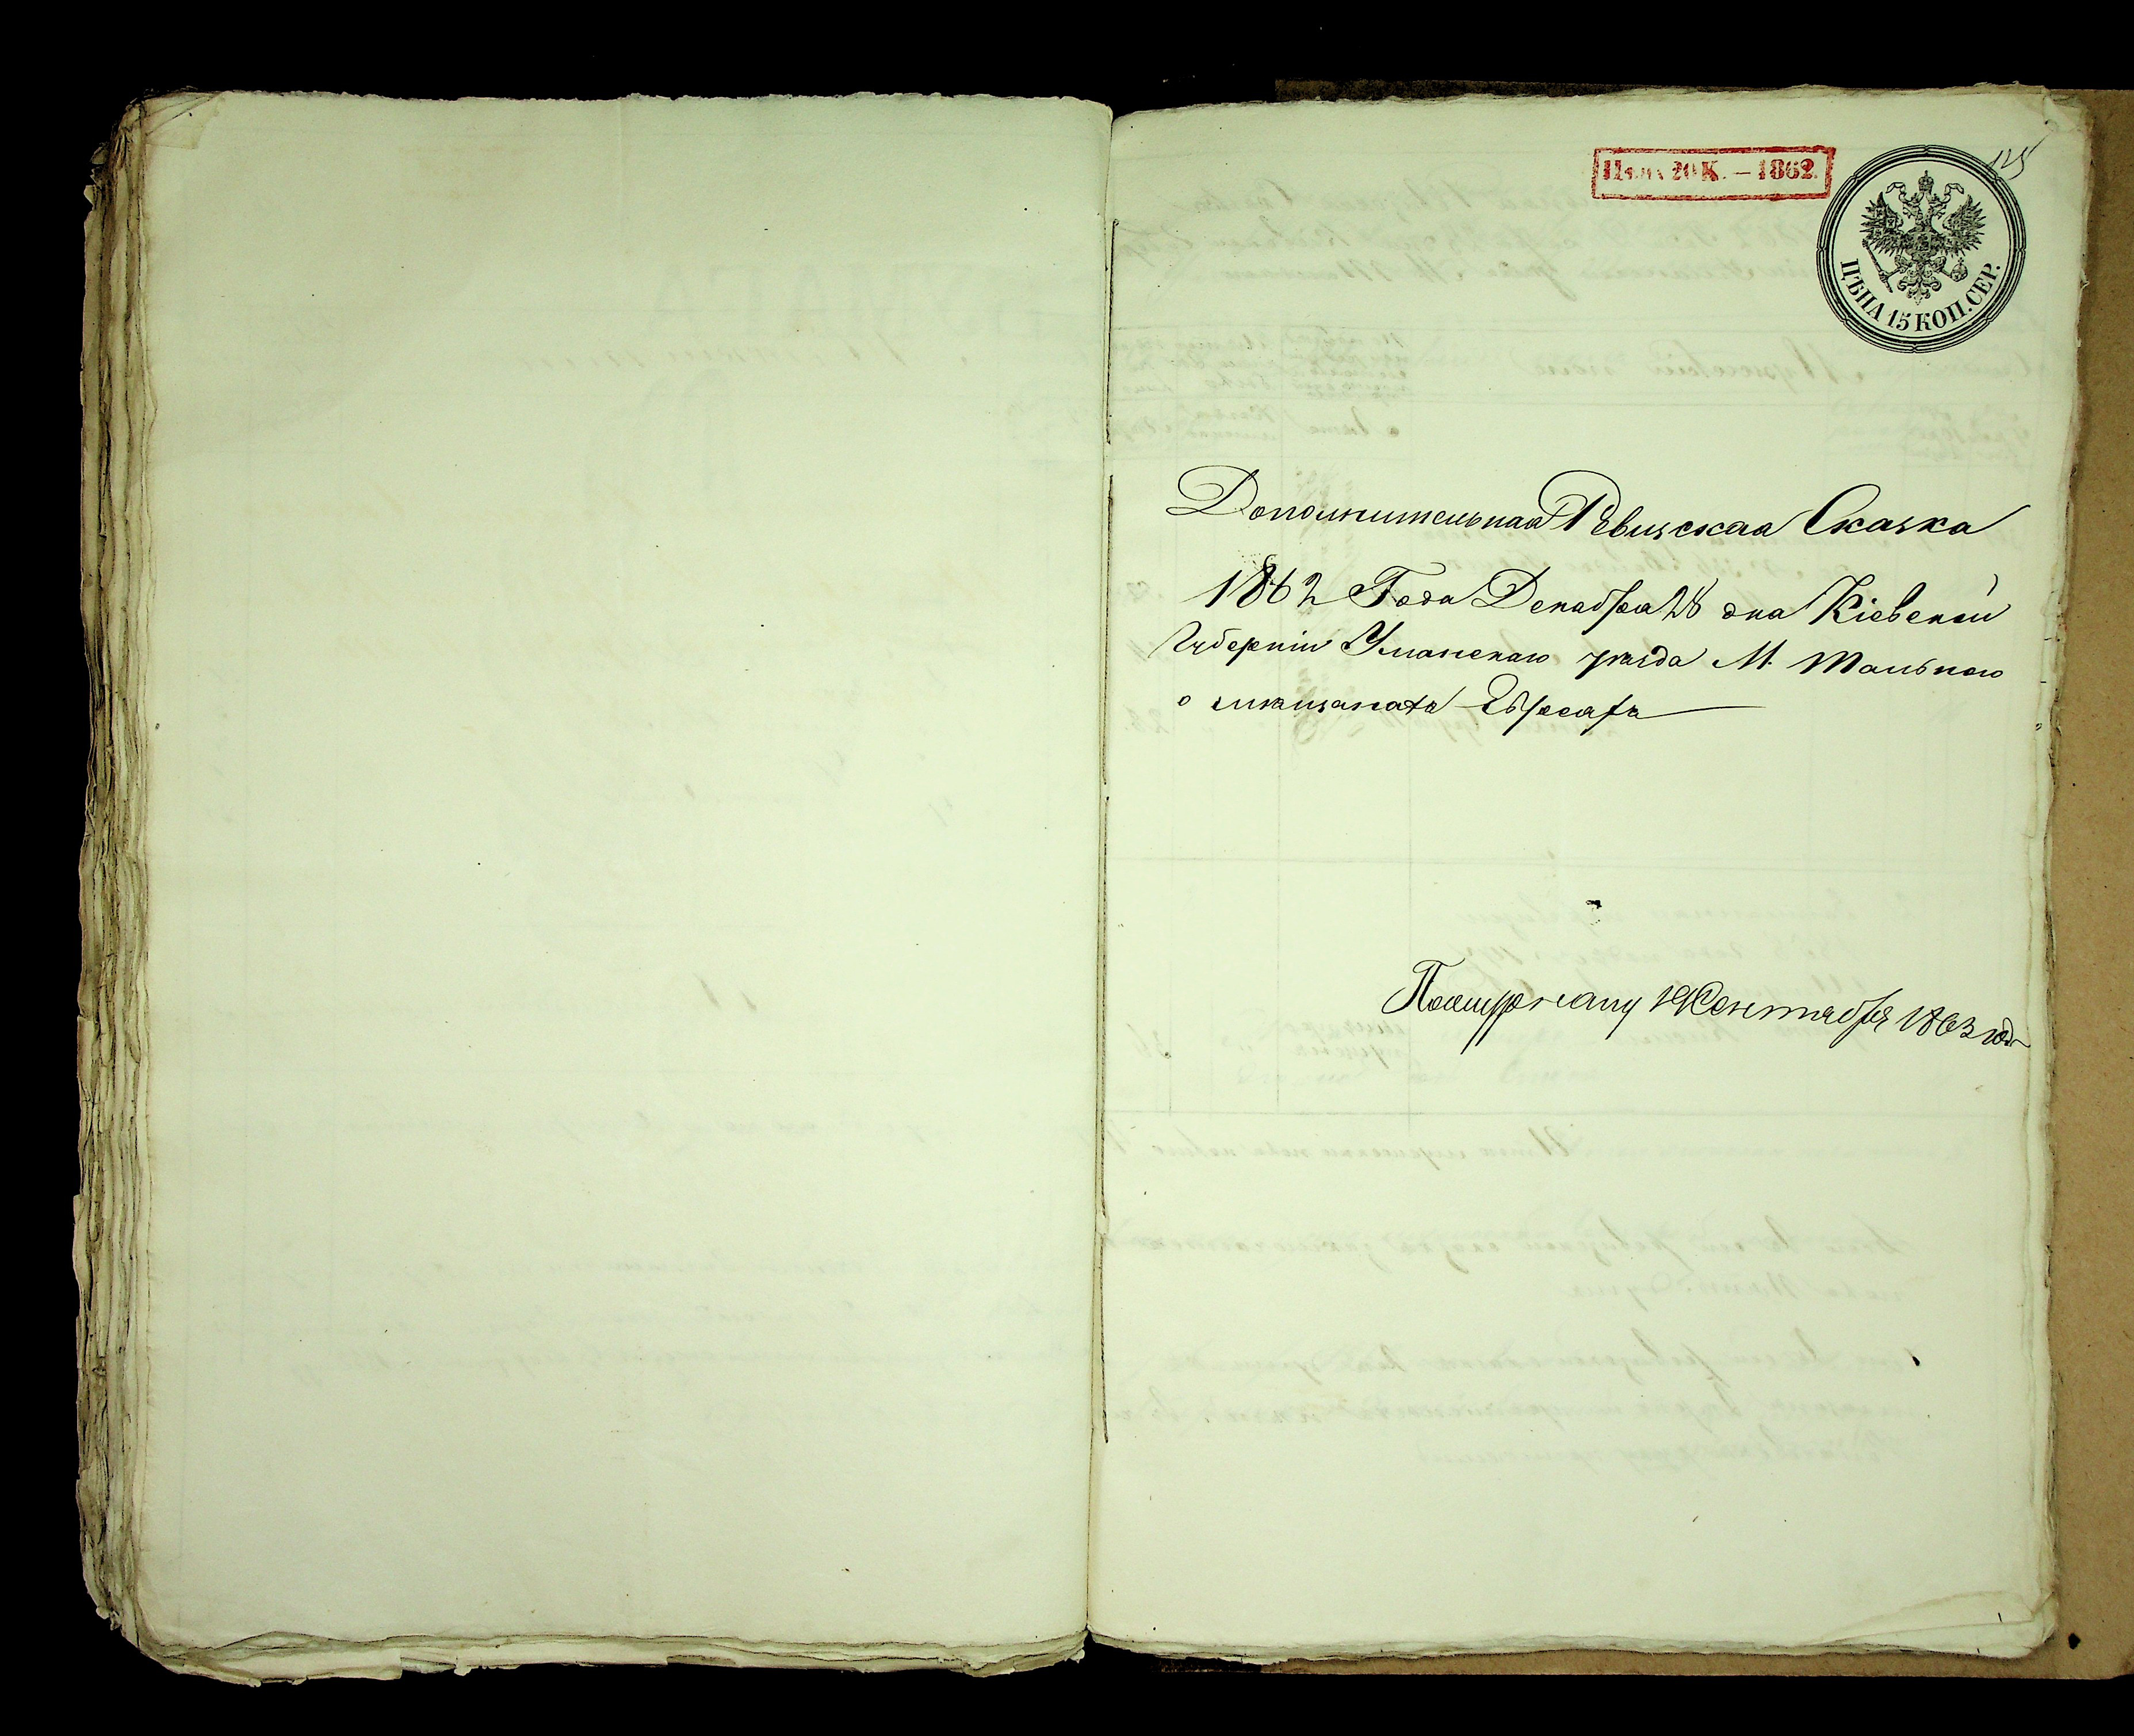 125
Цѣна 20 К. – 1862.
ЦѢНА 15 КОП. СЕР.
Дополнительная Ревизская Сказка
1862 Года Декабря 28 дня Кіевской
Губерніи Уманскаго уѣзда М. Тальнаго
о мѣщанахъ Евреяхъ
19 Сентября 1863 года